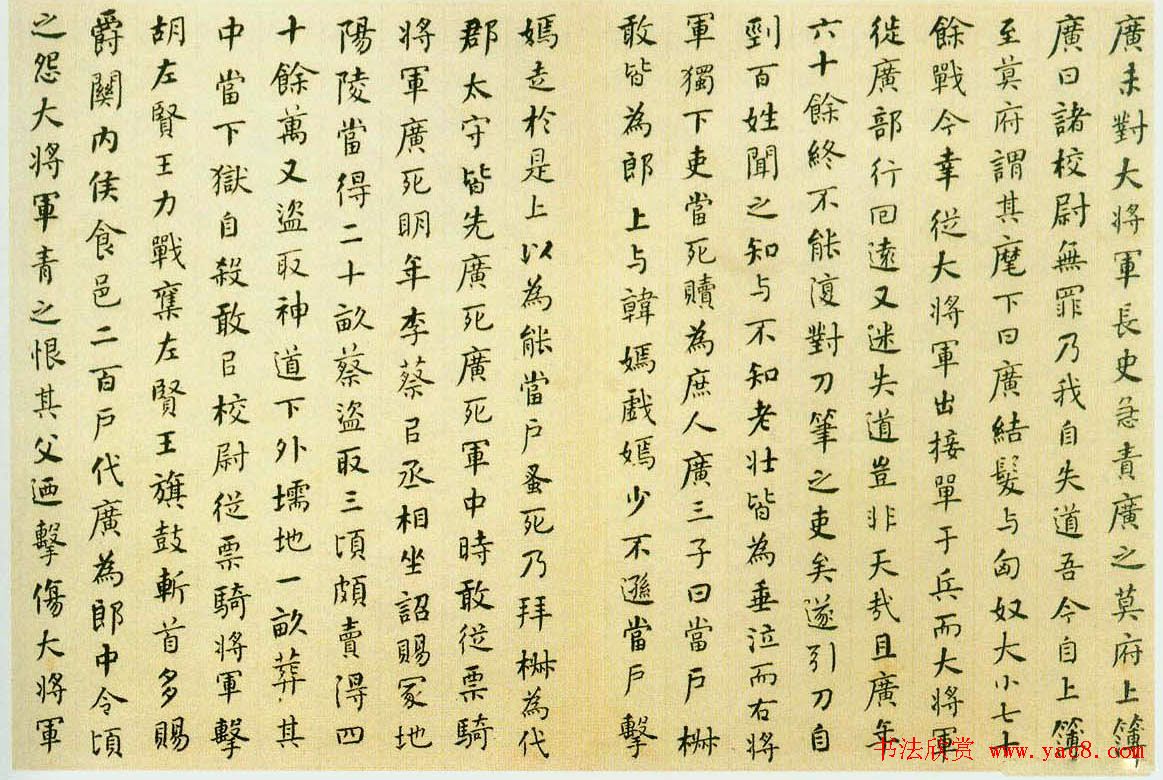 廣未對大將軍長史急責廣之莫府上簿
廣曰諸校尉無罪乃我自失道吾今自上簿
至莫府謂其麾下曰廣結髮与匈奴大小七十
餘戰今幸從大將軍出接單于兵而大將軍
徙廣部行回遠又迷失道豈非天哉且廣年
六十餘終不能復對刀筆之吏矣遂引刀自
剄百姓聞之知与不知老壯皆為垂泣而右將
軍獨下吏當死贖為庶人廣三子曰當戶椒
敢皆為郎上与韓嫣戲嫣少不遜當戶擊
嫣走於是上以為能當戶蚤死乃拜椒為代
郡太守皆先廣死廣死軍中時敢從票騎
將軍廣死明年李蔡㠯丞相坐詔賜冢地
陽陵當得二十畝蔡盜取三頃頗賣得四
十餘萬又盜取神道下外壖地一畝葬其
中當下獄自殺敢㠯校尉從票騎將軍擊
胡左賢王力戰奪左賢王旗鼓斬首多賜
爵關內侯食邑二百戶代廣為郎中令頃
之怨大將軍青之恨其父迺擊傷大將軍
书法欣赏 www.yac8.com